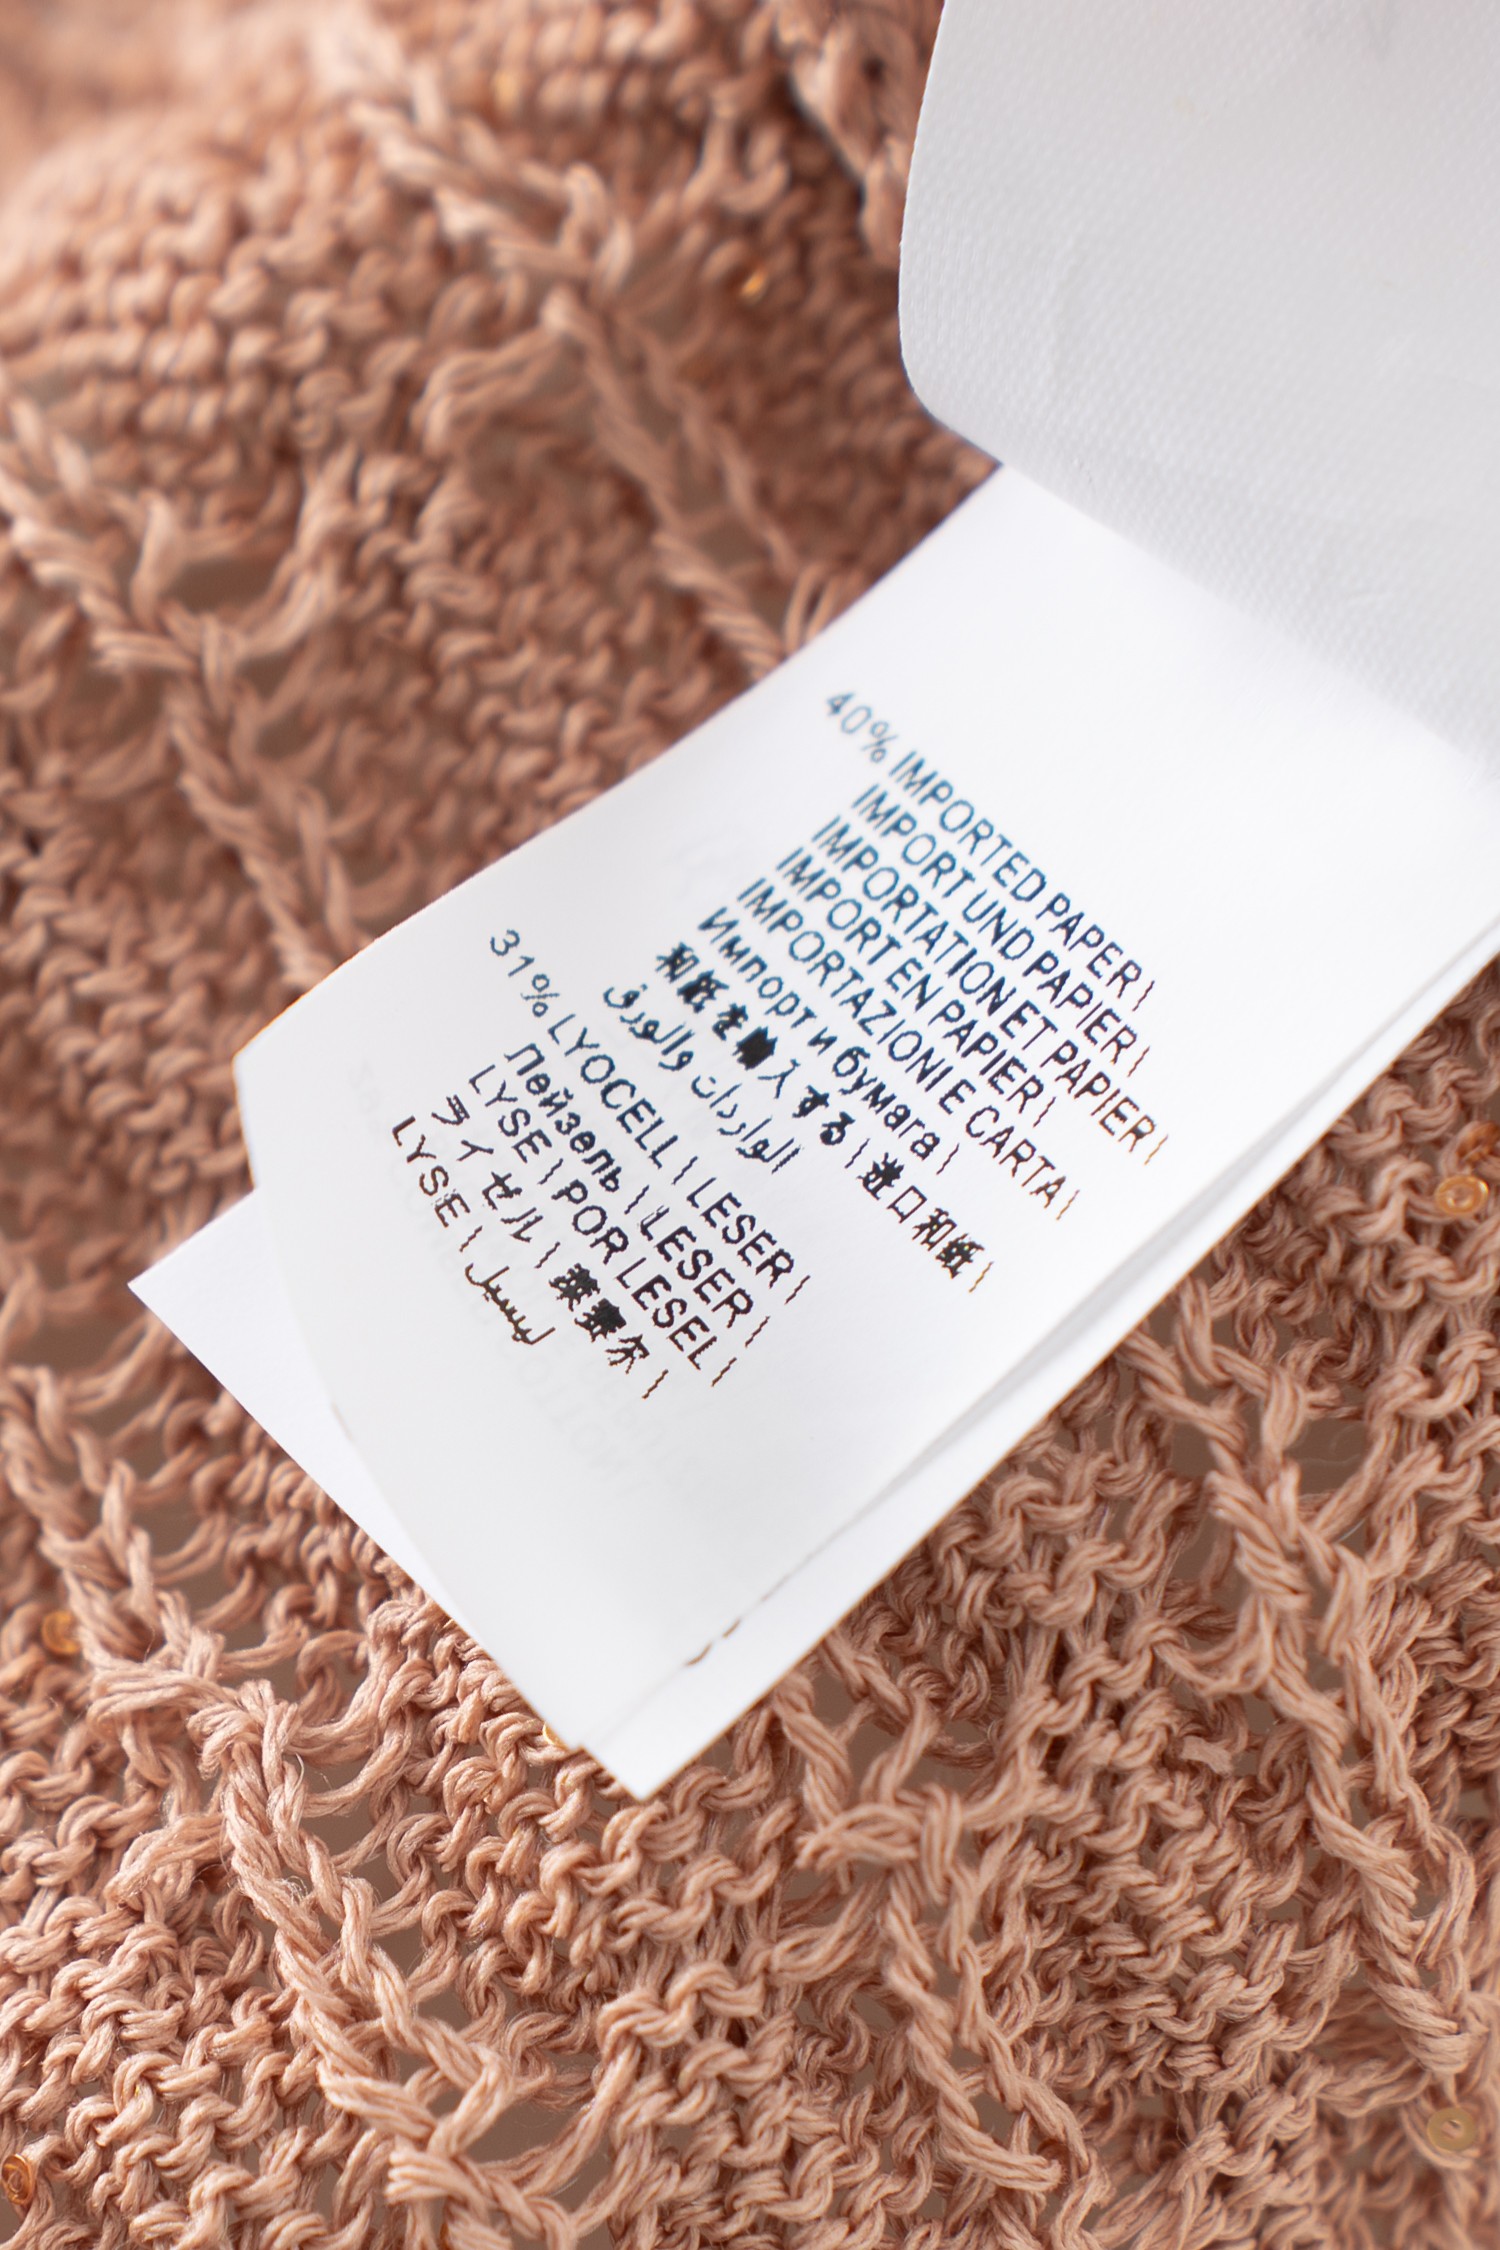 40% IMPORTED PAPER \
IMPORT UND PAPIER \
IMPORTATION ET PAPIER \
IMPORT EN PAPIER \
IMPORTAZIONI E CARTA \
Импорт и бумага \
和紙を輸入する \ 进口和纸 \
الواردات والورق
31% LYOCELL \ LESER \
Лейзель \ LESER \
LYSE \ POR LESEL \
ライゼル \ 赛尔 \
LYSE \ ليسيل